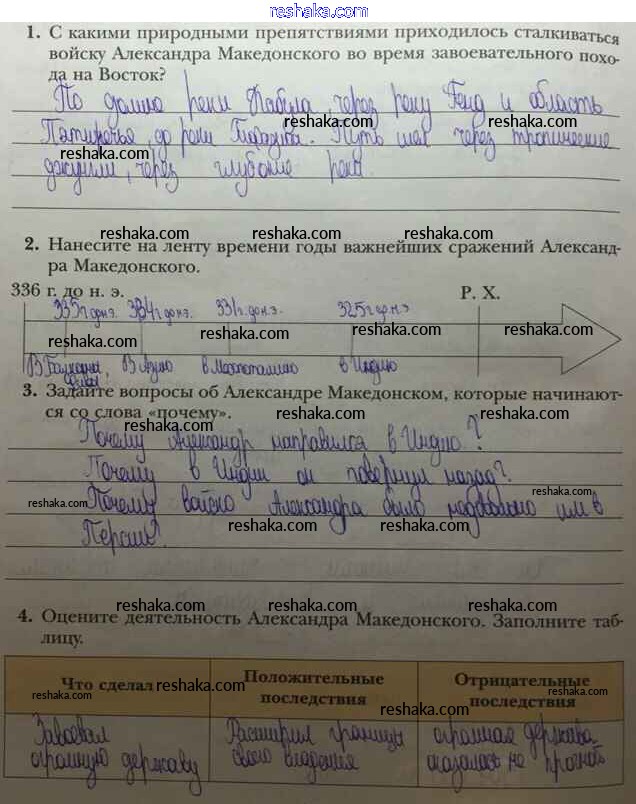 reshaka.com
1. С какими природными препятствиями приходилось сталкиваться
войску Александра Македонского во время завоевательного похо-
да на Восток?
reshaka.com
По долине реки Кабула, через реку Инд и область
reshaka.com
Пятиречья, до реки Путь шел через тропические
reshaka.com
джунгли, через глубокие реки.
reshaka.com
reshaka.com
2. Нанесите на ленту времени годы важнейших сражений Александ-
ра Македонского.
reshaka.com
336 г. до н. э. Р. Х.
335г до н э. 334г до нэ. 331г. до н.э. 325г до н э
reshaka.com reshaka.com
В Балканы, В Азию в Месопотамию в Индию
reshaka.com reshaka.com
3. Задайте вопросы об Александре Македонском, которые начинают-
ся со слова «почему».
reshaka.com
Почему Александр направился в Индию?
reshaka.com
Почему в Индии он повернул назад?
reshaka.com
Почему войско Александра было недовольно им в
reshaka.com
Персии?
reshaka.com
reshaka.com
4. Оцените деятельность Александра Македонского. Заполните таб-
лицу.
reshaka.com
Что сделал Положительные последствия Отрицательные последствия
reshaka.com reshaka.com
Завоевал Расширил границы огромная держава
reshaka.com reshaka.com
огромную державу своего владения оказалась не прочной
reshaka.com
reshaka.com